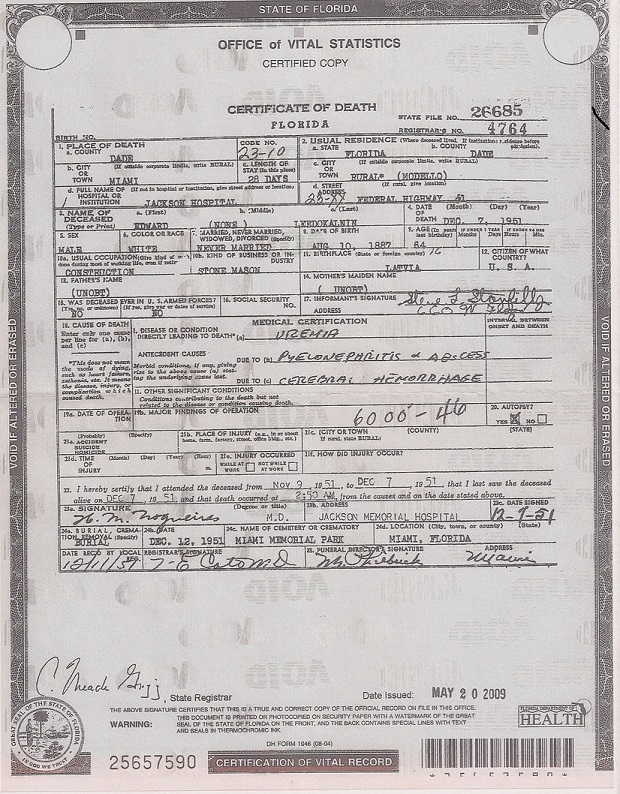 STATE OF FLORIDA
OFFICE of VITAL STATISTICS
CERTIFIED COPY
CERTIFICATE OF DEATH
FLORIDA
STATE FILE NO. 26685
REGISTRAR'S NO. 4764
BIRTH NO.
1. PLACE OF DEATH
a. COUNTY DADE
CODE NO. 23-10
2. USUAL RESIDENCE (Where deceased lived. If institution: residence before
a. STATE FLORIDA
b. COUNTY DADE
b. CITY OR TOWN MIAMI (If outside corporate limits, write RURAL)
c. LENGTH OF STAY (in this place) 28 DAYS
c. CITY OR TOWN RURAL* (MODELLO) (If outside corporate limits, write RURAL)
d. FULL NAME OF HOSPITAL OR INSTITUTION (If not in hospital or institution, give street address or location)
JACKSON HOSPITAL
d. STREET ADDRESS (If rural, give location)
FEDERAL HIGHWAY #1
3. NAME OF DECEASED (Type or Print)
a. (First) EDWARD
b. (Middle) (NONE)
c. (Last) LEEDSKALNIN
4. DATE OF DEATH (Month) (Day) (Year) DEC. 7, 1951
5. SEX MALE
6. COLOR OR RACE WHITE
7. MARRIED, NEVER MARRIED, WIDOWED, DIVORCED (Specify) NEVER MARRIED
8. DATE OF BIRTH AUG. 10, 1887
9. AGE (In years last birthday) 64
10a. USUAL OCCUPATION (Give kind of work done during most of working life, even if retired)
CONSTRUCTION
10b. KIND OF BUSINESS OR INDUSTRY STONE MASON
11. BIRTHPLACE (State or foreign country) LATVIA
12. CITIZEN OF WHAT COUNTRY? U. S. A.
13. FATHER'S NAME (UNOBT)
14. MOTHER'S MAIDEN NAME (UNOBT)
15. WAS DECEASED EVER IN U. S. ARMED FORCES?
(Yes, no, or unknown) NO (If yes, give war or dates of service) NO
16. SOCIAL SECURITY NO.
17. INFORMANT'S SIGNATURE
ADDRESS
18. CAUSE OF DEATH
Enter only one cause per line for (a), (b), and (c)
MEDICAL CERTIFICATION
INTERVAL BETWEEN ONSET AND DEATH
1. DISEASE OR CONDITION DIRECTLY LEADING TO DEATH* (a) UREMIA
*This does not mean the mode of dying, such as heart failure, asthenia, etc. It means the disease, injury, or complication which caused death.
ANTECEDENT CAUSES
Morbid conditions, if any, giving rise to the above cause (a) stating the underlying cause last.
DUE TO (b) PYELONEPHRITIS & ABSCESS
DUE TO (c) CEREBRAL HEMORRHAGE
11. OTHER SIGNIFICANT CONDITIONS
Conditions contributing to the death but not related to the disease or condition causing death.
6000-46
19a. DATE OF OPERATION
19b. MAJOR FINDINGS OF OPERATION
20. AUTOPSY?
YES NO
21a. ACCIDENT SUICIDE HOMICIDE (Probably) (Specify)
21b. PLACE OF INJURY (e.g., in or about home, farm, factory, street, office bldg., etc.)
21c. (CITY OR TOWN) (COUNTY) (STATE)
(If rural, state RURAL)
21d. TIME OF INJURY (Month) (Day) (Year) (Hour) m.
21e. INJURY OCCURRED
WHILE AT WORK NOT WHILE AT WORK
21f. HOW DID INJURY OCCUR?
22. I hereby certify that I attended the deceased from NOV 9, 1951, to DEC 7, 1951, that I last saw the deceased
alive on DEC 7, 1951, and that death occurred at 2:50 AM, from the causes and on the date stated above.
23a. SIGNATURE (Degree or title) M.D.
23b. ADDRESS JACKSON MEMORIAL HOSPITAL
23c. DATE SIGNED 12-9-51
24a. BURIAL, CREMATION, REMOVAL (Specify) BURIAL
24b. DATE DEC. 12, 1951
24c. NAME OF CEMETERY OR CREMATORY MIAMI MEMORIAL PARK
24d. LOCATION (City, town, or county) (State) MIAMI, FLORIDA
DATE REC'D BY LOCAL REG. 12/11/51
REGISTRAR'S SIGNATURE
25. FUNERAL DIRECTOR'S SIGNATURE
ADDRESS Miami
VOID IF ALTERED OR ERASED
VOID IF ALTERED OR ERASED
, State Registrar
Date Issued: MAY 20 2009
THE ABOVE SIGNATURE CERTIFIES THAT THIS IS A TRUE AND CORRECT COPY OF THE OFFICIAL RECORD ON FILE IN THIS OFFICE.
WARNING: THIS DOCUMENT IS PRINTED OR PHOTOCOPIED ON SECURITY PAPER WITH A WATERMARK OF THE GREAT
SEAL OF THE STATE OF FLORIDA ON THE FRONT, AND THE BACK CONTAINS SPECIAL LINES WITH TEXT
AND SEALS IN THERMOCHROMIC INK.
FLORIDA DEPARTMENT OF
HEALTH
GREAT SEAL OF THE STATE OF FLORIDA
IN GOD WE TRUST
DH FORM 1946 (08-04)
25657590
CERTIFICATION OF VITAL RECORD